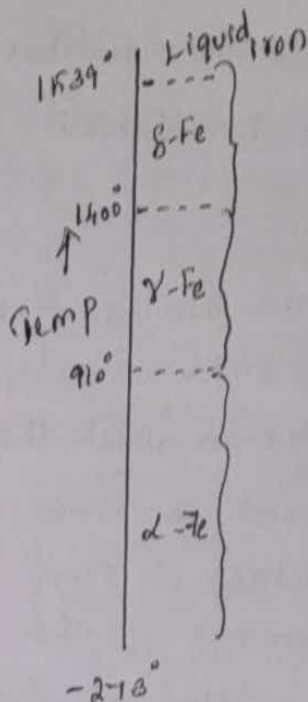 Liquid iron
1539°
δ-Fe
1400°
Temp
γ-Fe
910°
α-Fe
-273°